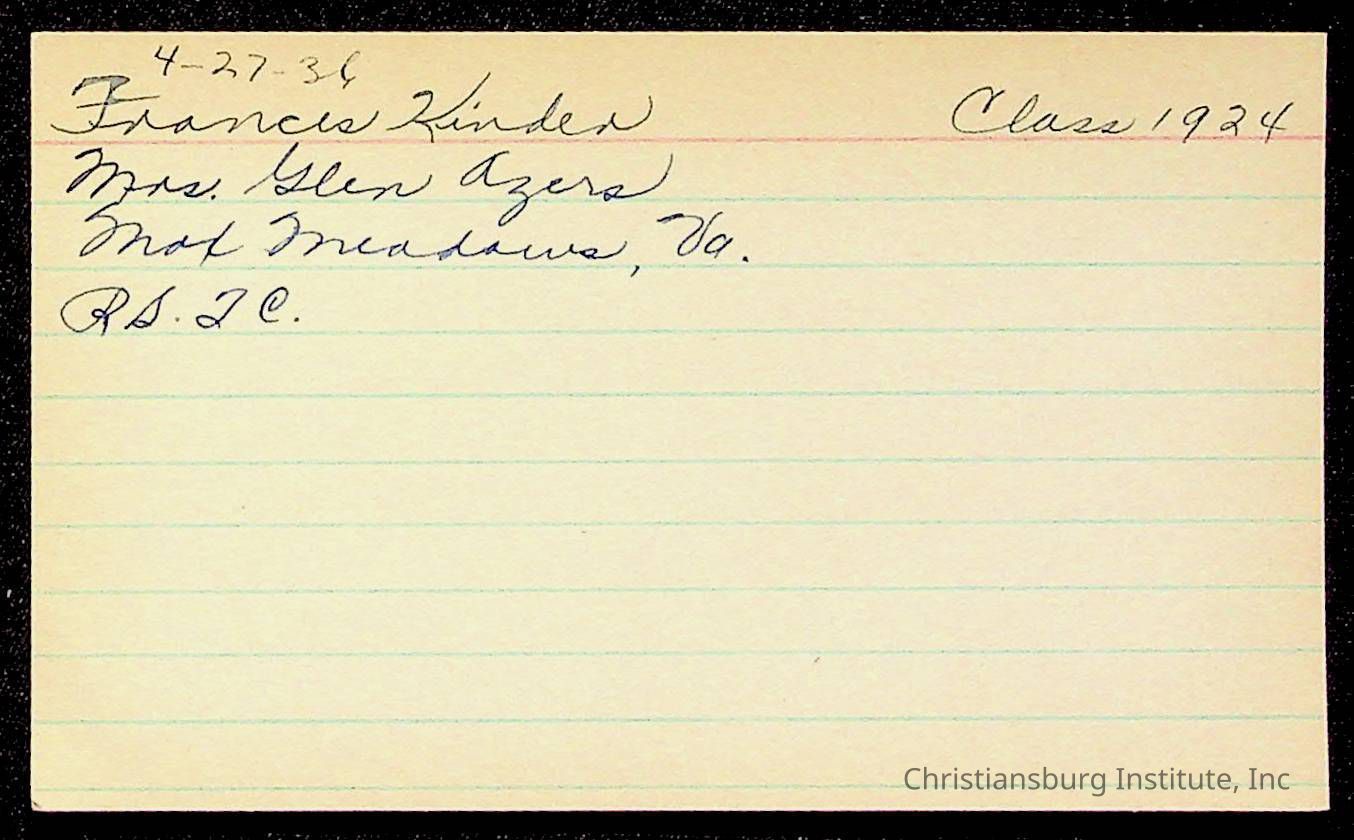 4-27-36
Francis Kinder Class 1924
Mrs. Glen Ayers
Max Meadows, Va.
R.S. T C.
Christiansburg Institute, Inc